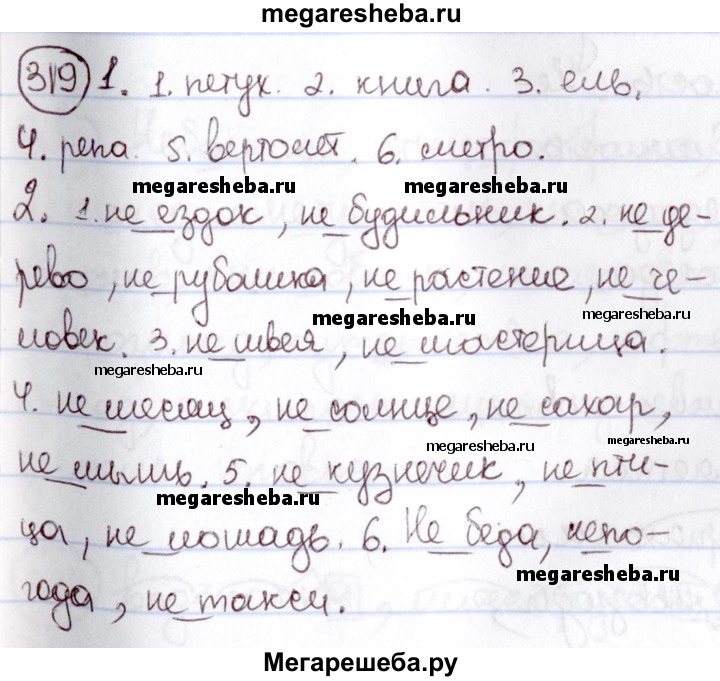 megaresheba.ru
319 1. 1. петух. 2. книга. 3. ель.
4. репа. 5. вертолёт. 6. метро.
megaresheba.ru megaresheba.ru
2. 1. не ездок, не будильник. 2. не де-
рево, не рубашка, не растение, не че-
megaresheba.ru
megaresheba.ru
ловек. 3. не швея, не мастерица.
megaresheba.ru
4. не месяц, не солнце, не сахар,
megaresheba.ru
megaresheba.ru
не мышь. 5. не кузнечик, не пти-
megaresheba.ru
ца, не лошадь. 6. Не беда, непо-
megaresheba.ru
года, не такси.
Мегарешеба.ру